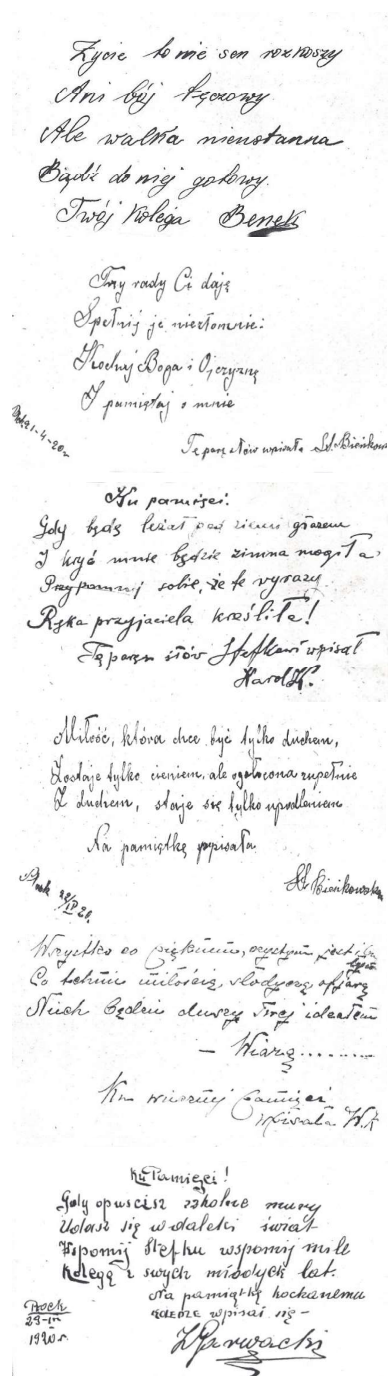 Życie to nie sen rozkoszy
Ani bój tęczowy
Ale walka nieustanna
Bądź do niej gotowy.
Twój Kolega Benek
Trzy rady Ci daję
Spełnij je niezłomnie:
Kochaj Boga i Ojczyznę
I pamiętaj o mnie
21-4-20r
Tę parę słów wpisała St. Bieńkows
Ku pamięci!
Gdy będę leżał pod ziemi głazem
I kryć mnie będzie zimna mogiła
Przypomnij sobie, że te wyrazy
Ręka przyjaciela kreśliła!
Tę parę słów Stefkowi wpisał
Karol K.
Miłość, która chce być tylko duchem,
Zostaje tylko cieniem, ale ogołocona zupełnie
Z duchem, staje się tylko upodleniem
Na pamiątkę popisała
St. Bieńkowska
Płock 22/IV 20.
Wszystko co pięknem, czystym jest
Co tchnie miłością, słodyczą, ofiarą
Niech będzie duszy Twej ideałem
— Wiarą.........
Ku wiecznej pamięci
wpisała W.K
Ku Pamięci!
Gdy opuścisz szkolne mury
Udasz się w daleki świat
Wspomij Stefku wspomij mile
Kolegę z swych młodych lat.
Na pamiątkę kochanemu
koledze wpisał się —
Płock
29-IV
1920 r.